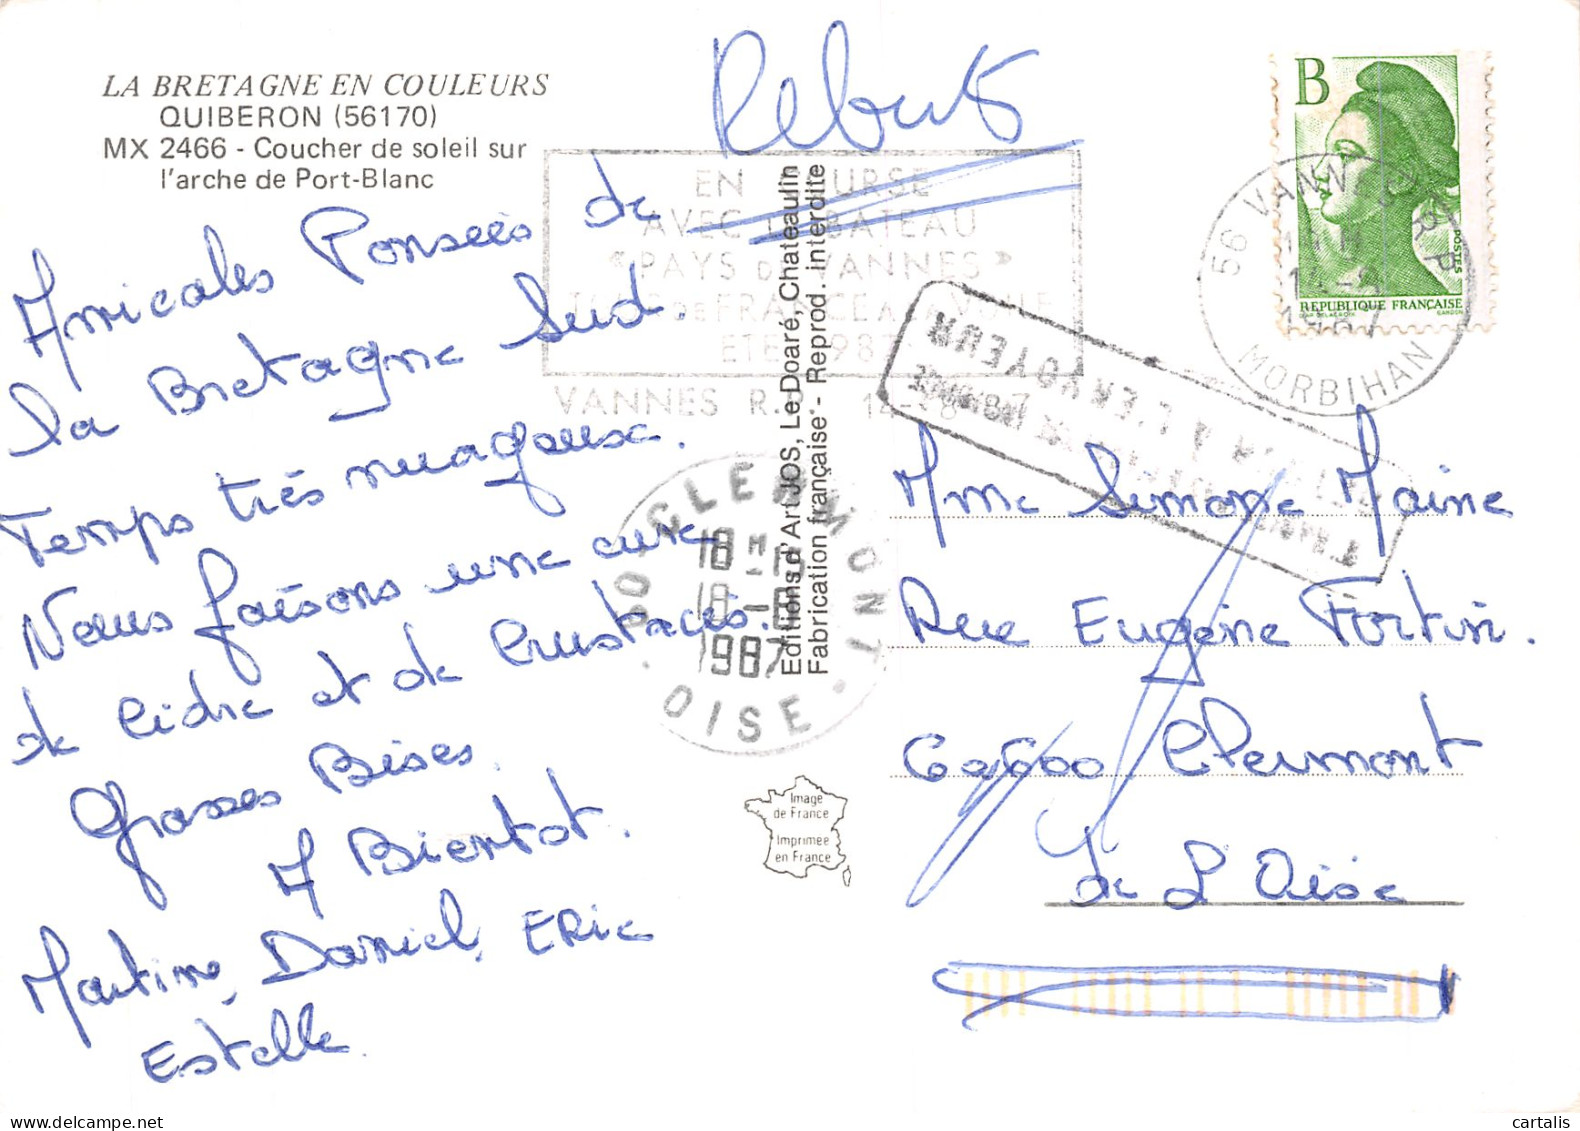 LA BRETAGNE EN COULEURS
QUIBERON (56170)
MX 2466 - Coucher de soleil sur
l'arche de Port-Blanc
Rebuts
Amicales Pensées de
la Bretagne Sud.
Temps très nuageux.
Nous faisons une cure
de Cidre et de Crustacés.
Grosses Bises.
A Bientot.
Martine, Daniel, ERic
Estelle.
EN
AVEC BATEAU
"PAYS DE VANNES"
DE FRANCE A
ETE 1987
VANNES R.P. 14-8
60 CLERMONT
18 H
18-8
1987
OISE
Editions d'Art JOS, Le Doaré, Chateaulin
Fabrication française - Reprod. interdite
Image
de France
Imprimée
en France
B
POSTES
REPUBLIQUE FRANÇAISE
GANDON
56 VANNES R.P.
1987
MORBIHAN
RETOUR A L'ENVOYEUR
Mme Simone Maine
Rue Eugène Fortin.
60600 Clermont
de L'Oise
cartalis